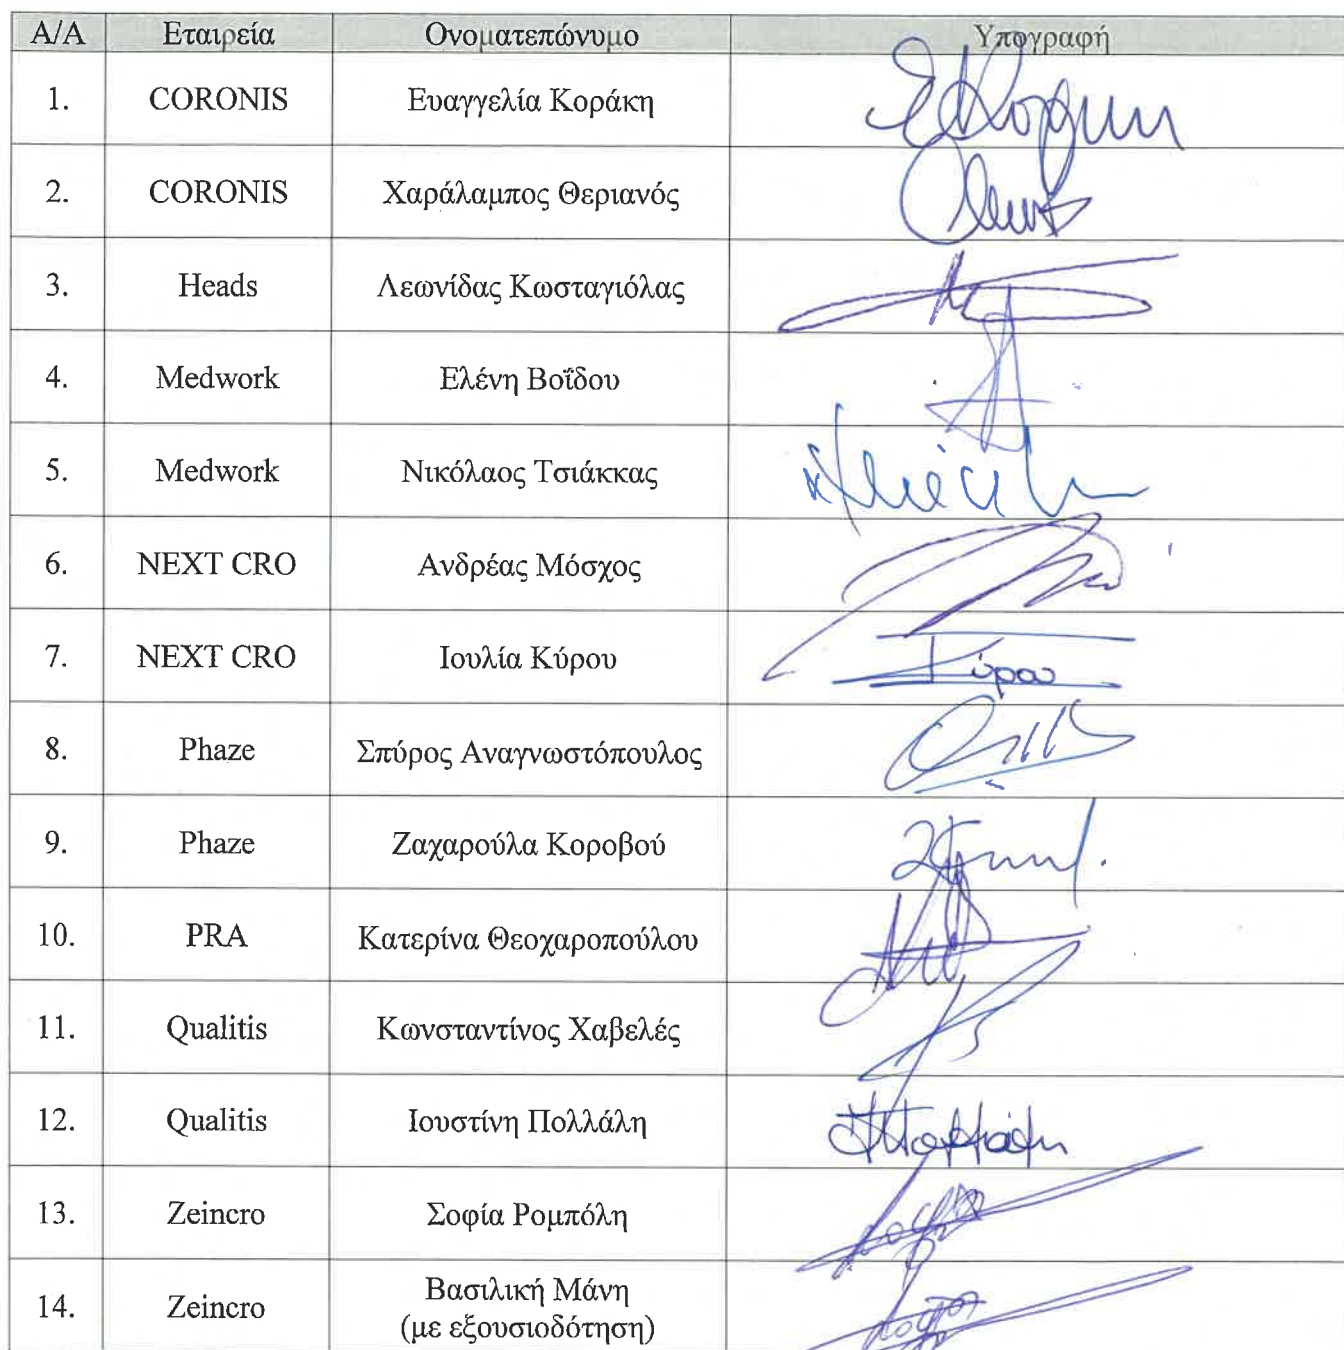 Α/Α Εταιρεία Ονοματεπώνυμο Υπογραφή
1. CORONIS Ευαγγελία Κοράκη
2. CORONIS Χαράλαμπος Θεριανός
3. Heads Λεωνίδας Κωσταγιόλας
4. Medwork Ελένη Βοΐδου
5. Medwork Νικόλαος Τσιάκκας
6. NEXT CRO Ανδρέας Μόσχος
7. NEXT CRO Ιουλία Κύρου
8. Phaze Σπύρος Αναγνωστόπουλος
9. Phaze Ζαχαρούλα Κοροβού
10. PRA Κατερίνα Θεοχαροπούλου
11. Qualitis Κωνσταντίνος Χαβελές
12. Qualitis Ιουστίνη Πολλάλη
13. Zeincro Σοφία Ρομπόλη
14. Zeincro Βασιλική Μάνη
(με εξουσιοδότηση)